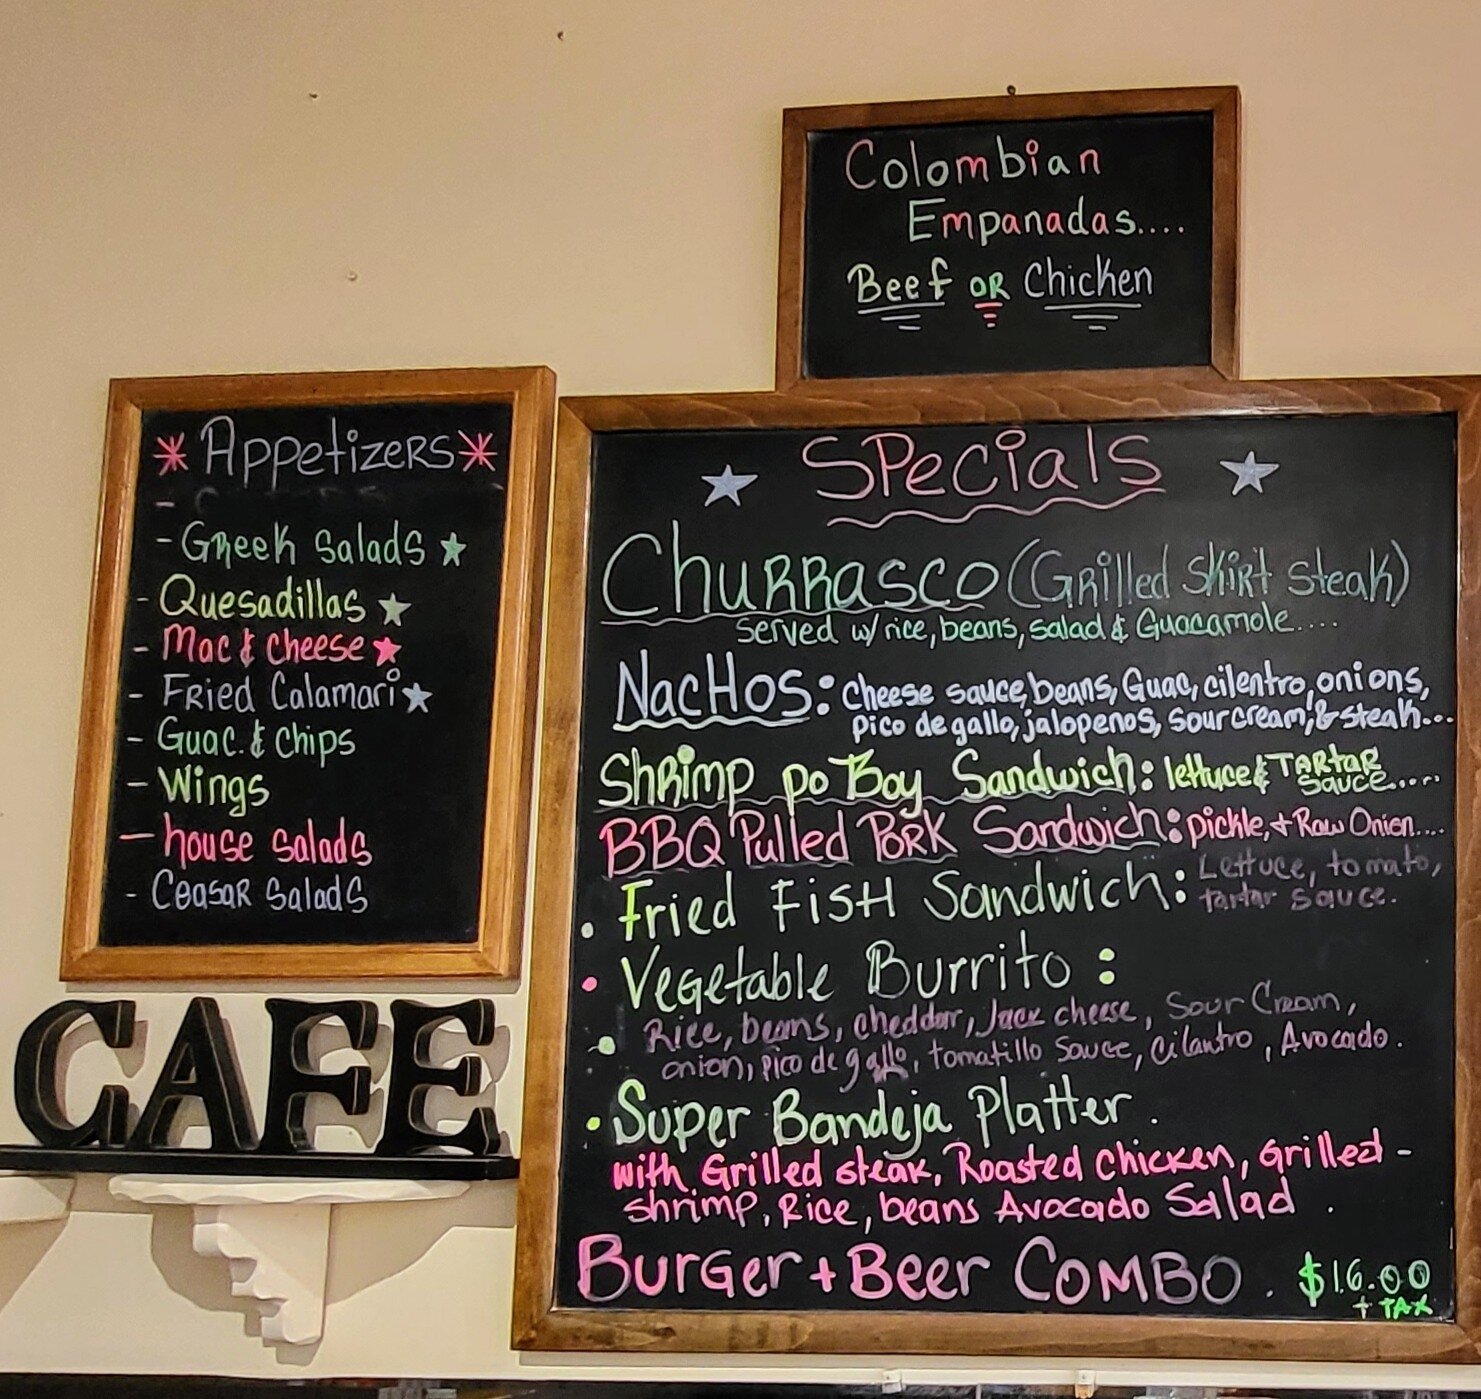 Colombian
Empanadas....
Beef OR Chicken
* Appetizers *
-
- Greek Salads ★
- Quesadillas ★
- Mac & Cheese ★
- Fried Calamari ★
- Guac. & Chips
- Wings
- house salads
- Ceasar Salads
CAFE
★ Specials ★
Churrasco (Grilled Skirt Steak)
served w/ rice, beans, salad & Guacamole....
Nachos: Cheese sauce, beans, Guac, cilentro, onions,
pico de gallo, jalopenos, sour cream, & steak...
Shrimp po Boy Sandwich: lettuce & TARtaR
Sauce.....
BBQ Pulled Pork Sandwich: pickle, + Raw Onion....
• Fried Fish Sandwich: Lettuce, tomato,
tartar sauce.
• Vegetable Burrito:
• Rice, beans, cheddar, Jack cheese, Sour Cream,
onion, pico de gallo, tomatillo Sauce, Cilantro, Avocado.
• Super Bandeja Platter.
with Grilled steak, Roasted Chicken, Grilled -
shrimp, Rice, beans Avocado Salad.
Burger + Beer COMBO. $16.00
+ TAX